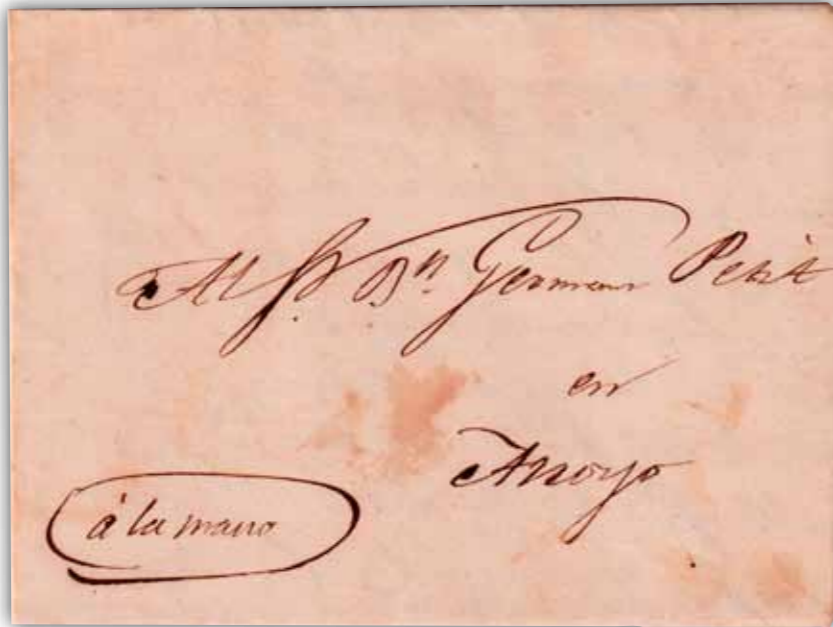 Al Sr. Dn. German Petit
en
Arroyo
á la mano